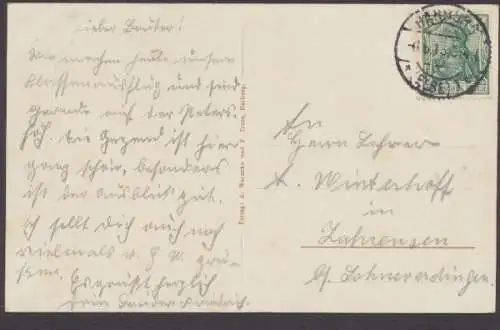 Lieber Bruder!
Wir machen heute unsern
Klassenausflug und sind
gerade auf der Peters-
höh. Die Gegend ist hier
ganz schön, besonders
ist der Ausblick gut.
Ich sollt Dich auch noch
vielmals v. H. W. grü-
ßen.
Es grüßt herzlich
Dein Bruder
An
Herrn Lehrer
H. Winterhoff
in
Zahrensen
bei Schneverdingen.